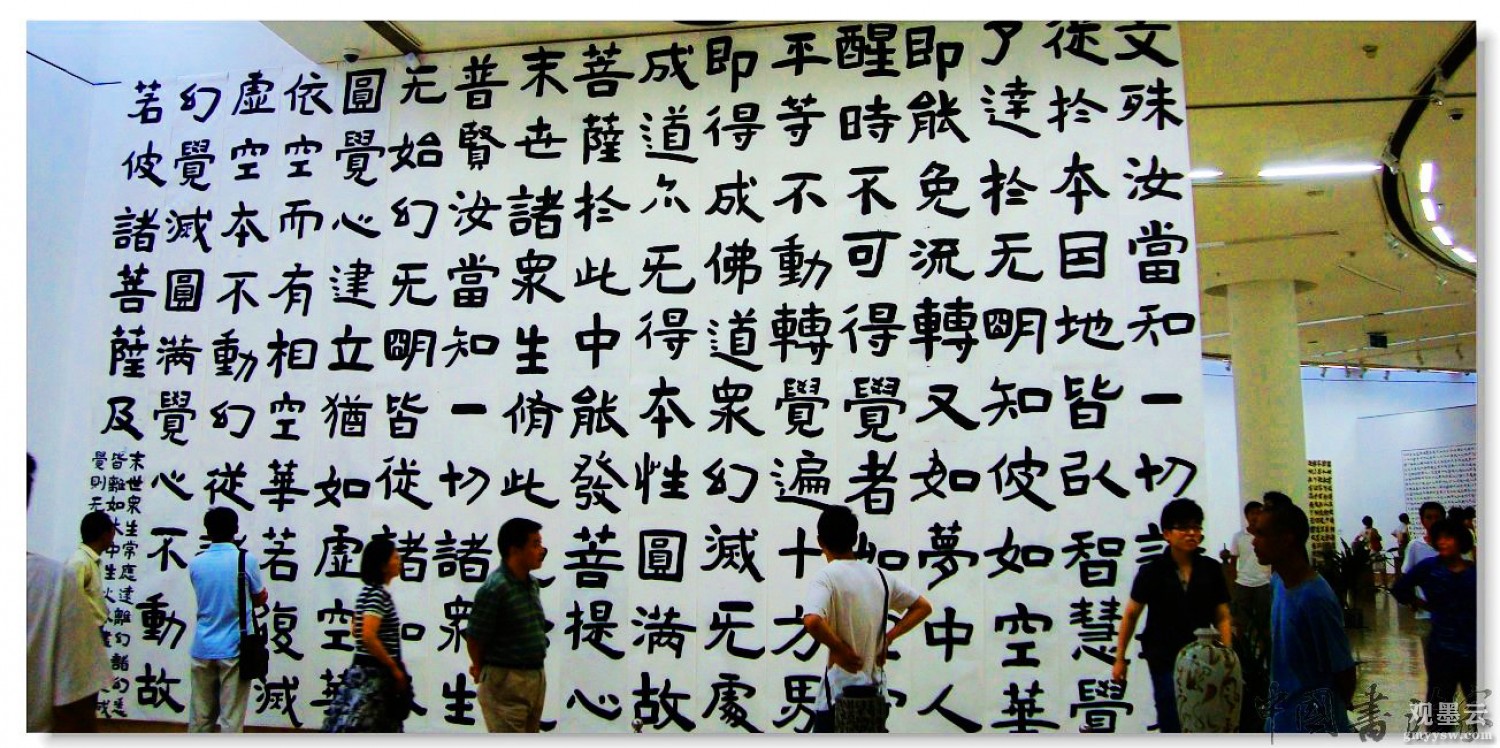 文殊汝當知一切諸
從於本因地皆以智慧覺
了達於无明知彼如空華
即能免流轉又如夢中人
醒時不可得覺者如空
平等不動轉覺遍十方界
即得成佛道眾幻滅无處
成道亦无得本性圓滿故
菩薩於此中能發菩提心
末世諸眾生脩此
普賢汝當知一切諸眾生
无始幻无明皆從諸如
圓覺心建立猶如虛空華
依空而有相空華若復滅
虛空本不動幻從諸
幻覺滅圓滿覺心不動故
若彼諸菩薩及
末世眾生常應遠離幻諸幻悉
皆離如木中生火木盡
覺則无
中国书法家
观墨云
gmyysw.com